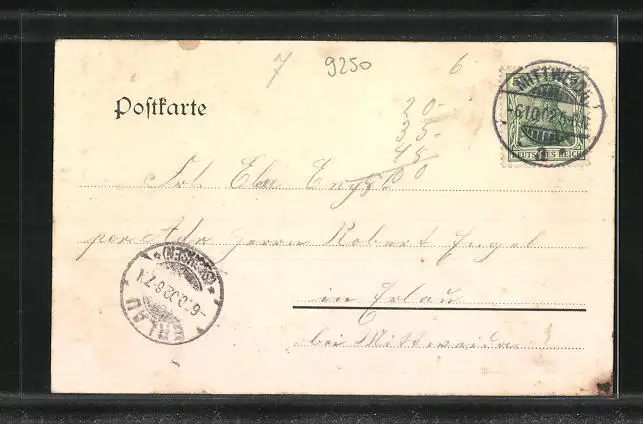 7 9250 6
MITTWEIDA
-6.10.02.5-6N
DEUTSCHES REICH
Postkarte
20-
35-
45-
100
Frl. Elsa Engel
per Adr Herrn Robert Engel
in Erlau
bei Mittweida
(SACHSEN)
-6.10.02.6-7N
ERLAU